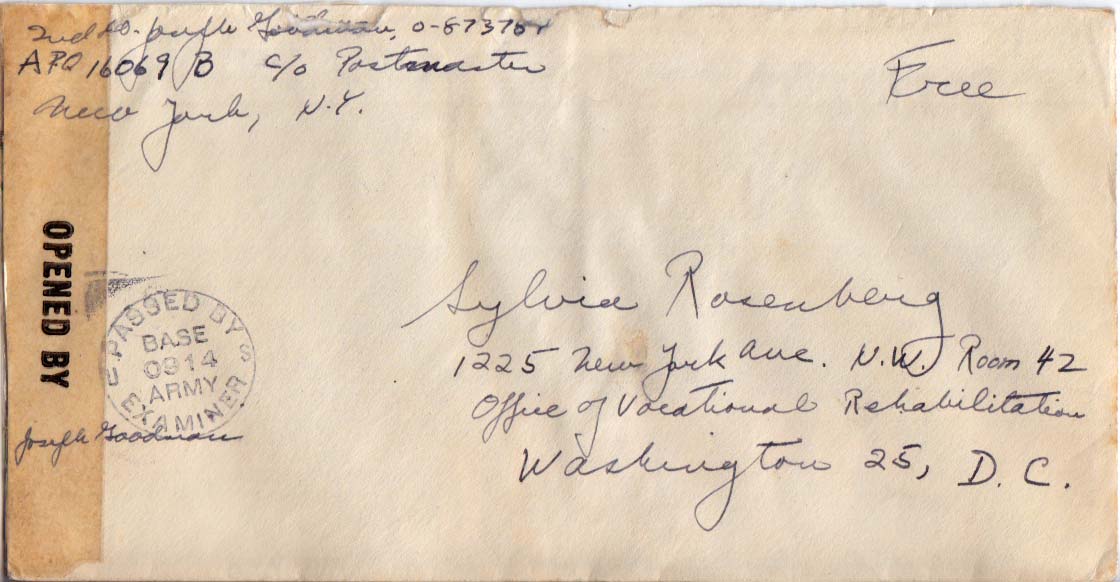 2nd Lt. Joseph Goodman, O-873764
APO 16069 B c/o Postmaster
New York, N.Y.
Free
OPENED BY
U.S. PASSED BY
BASE
0914
ARMY
EXAMINER
Joseph Goodman
Sylvia Rosenberg
1225 New York Ave. N.W. Room 42
Office of Vocational Rehabilitation
Washington 25, D.C.